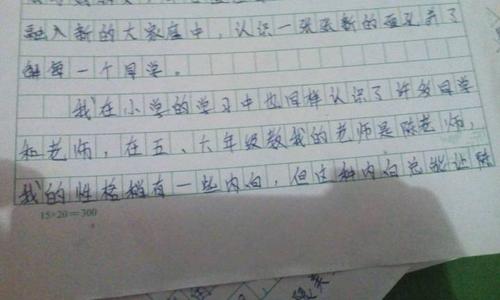 融入新的大家庭中,认识一张张新的面孔
每一个同学。
我在小学的学习中也同样认识了许多同学
和老师,在五、六年级教我的老师是陈老师,
我的性格稍有一些内向,但这种内向总能让陈
15×20=300